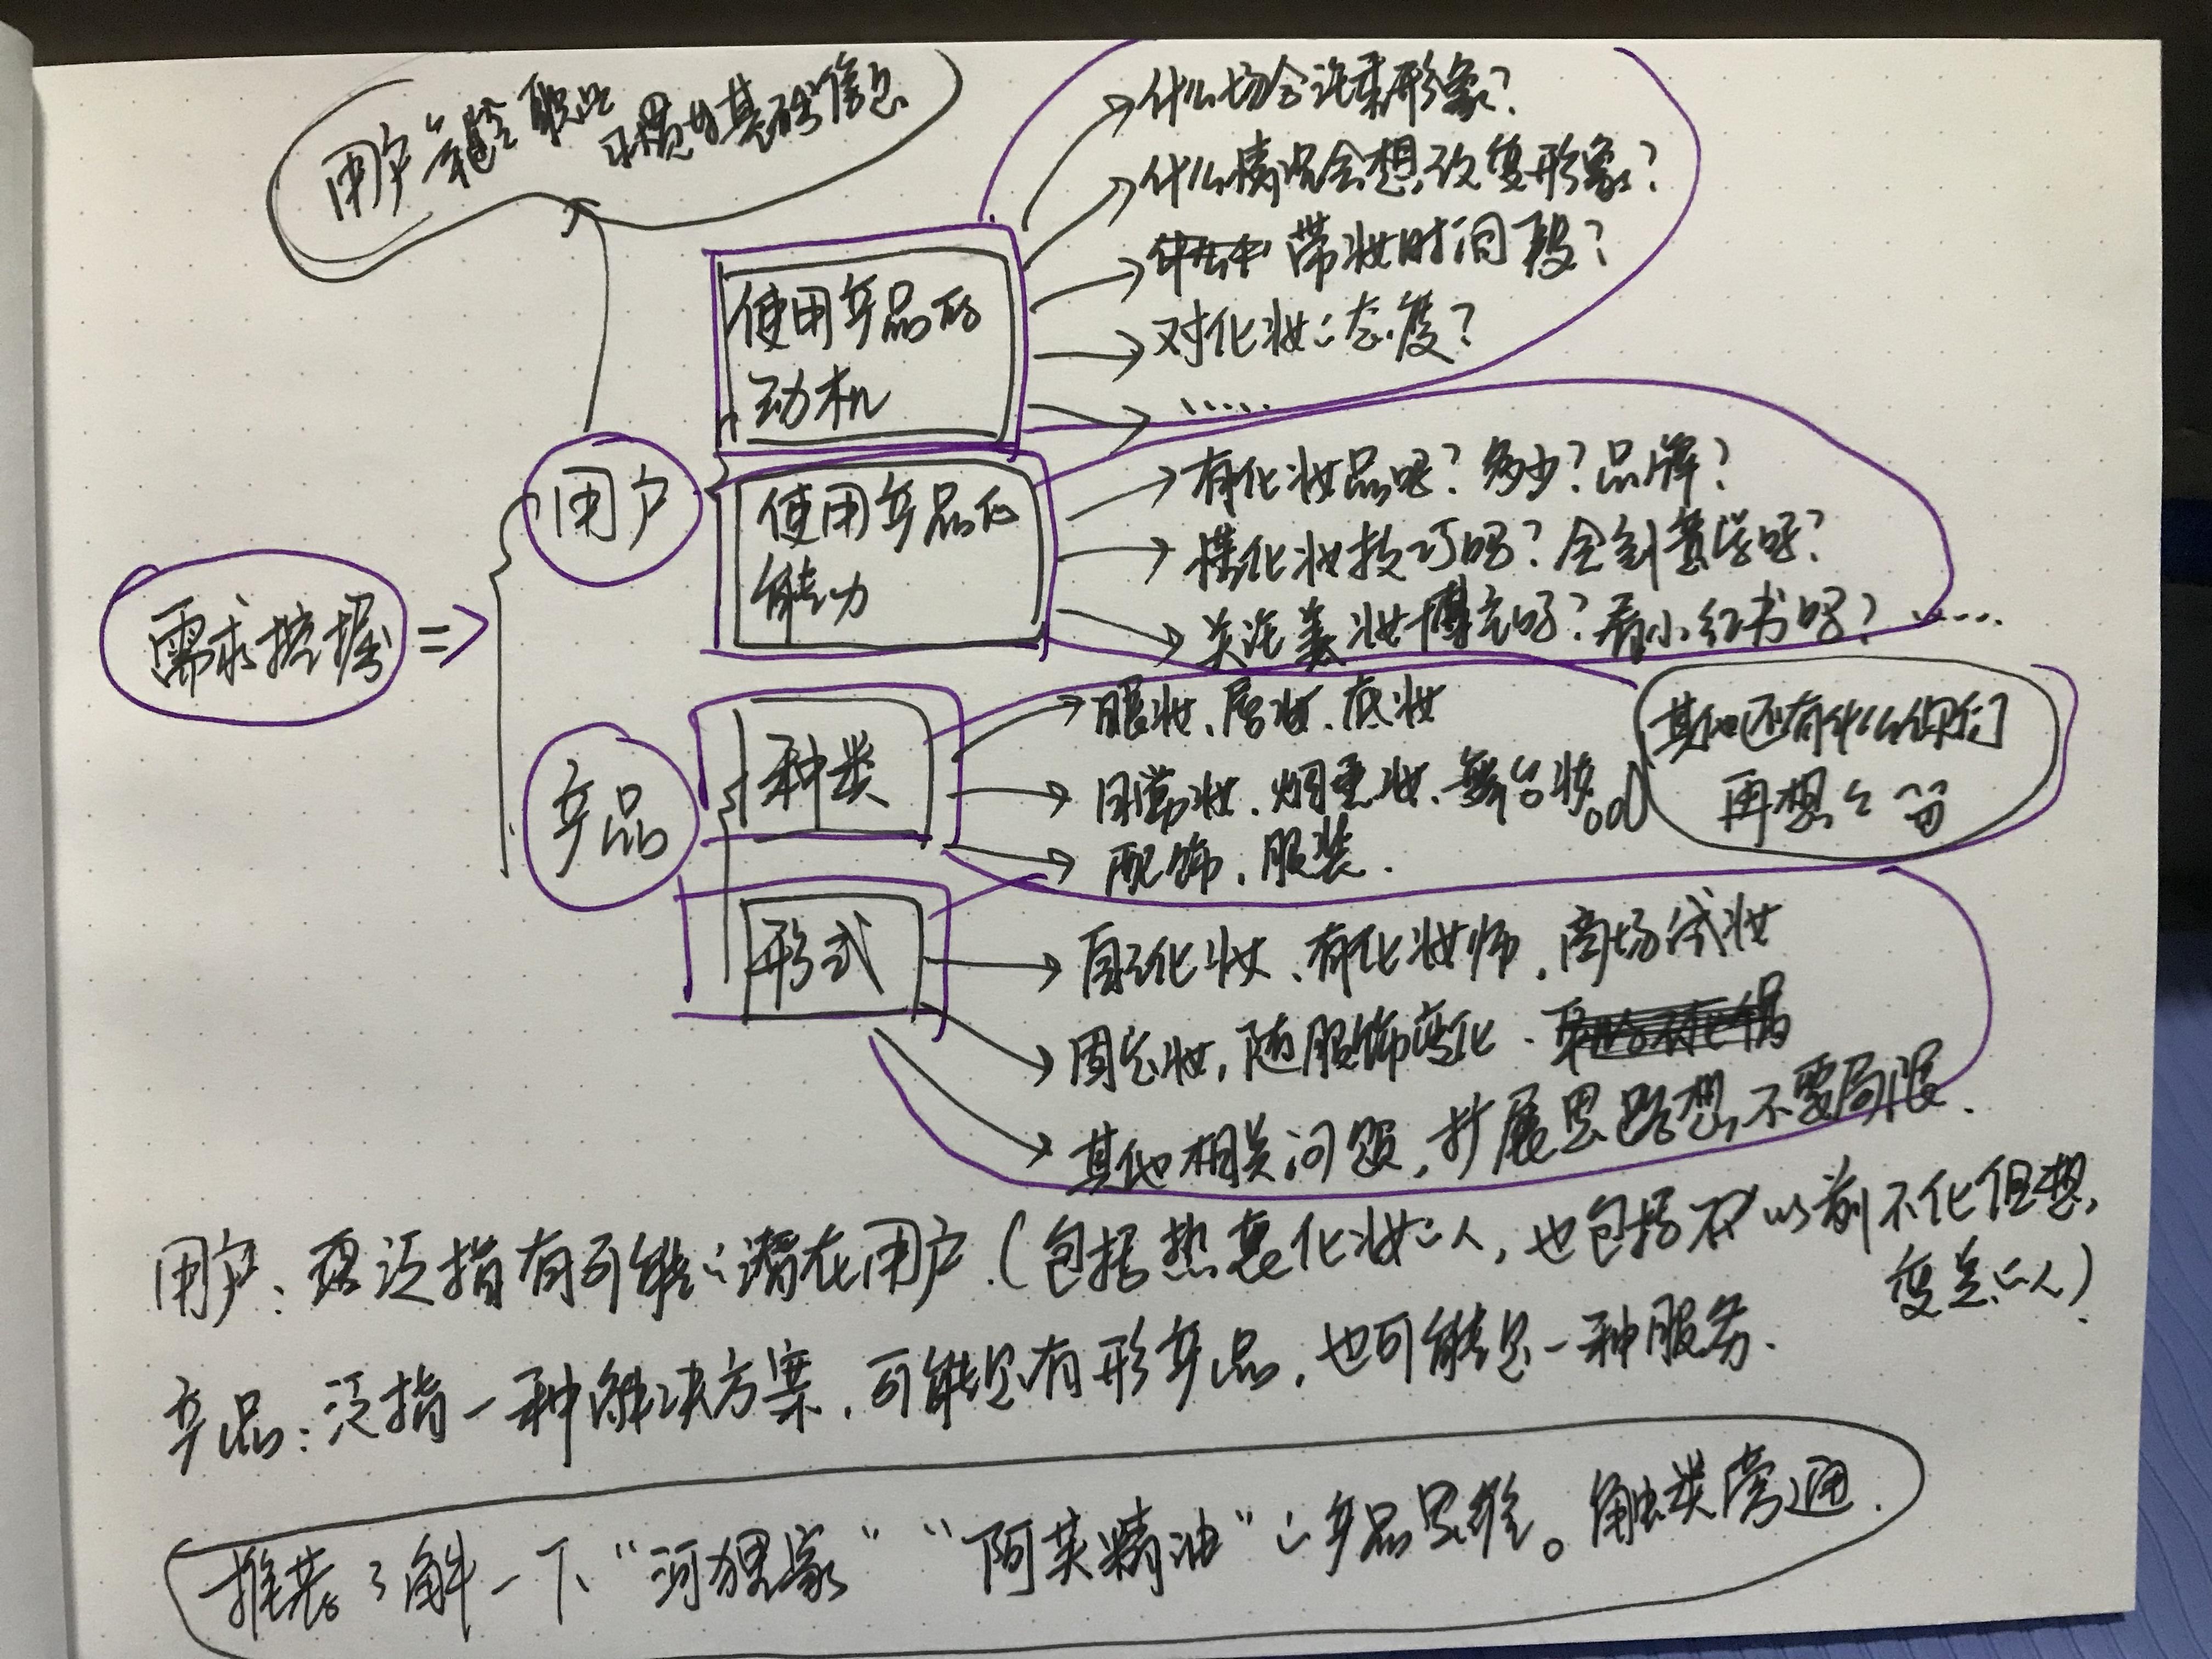 用户年龄职业
习惯的基础信息
什么场合注重形象?
什么情况会想改变形象?
带妆时间段?
使用产品的
动机
对化妆的态度?
……
用户
使用产品的
能力
有化妆品吗? 多少? 品牌?
懂化妆技巧吗? 会刻意学吗?
关注美妆博主吗? 看小红书吗? ……
需求挖掘 =>
产品
种类
眼妆、唇妆、底妆
日常妆、烟熏妆、舞台妆
配饰、服装.
其他还有什么你们
再想一想
形式
自己化妆、有化妆师、商场试妆
固定妆, 随服饰变化、
其他相关问题, 扩展思路想, 不要局限.
用户: 泛指有可能的潜在用户.(包括热衷化妆的人, 也包括以前不化但想
变美的人)
产品: 泛指一种解决方案, 可能是有形产品, 也可能是一种服务.
推荐了解一下“河狸家”“阿芙精油”的产品思维。触类旁通.